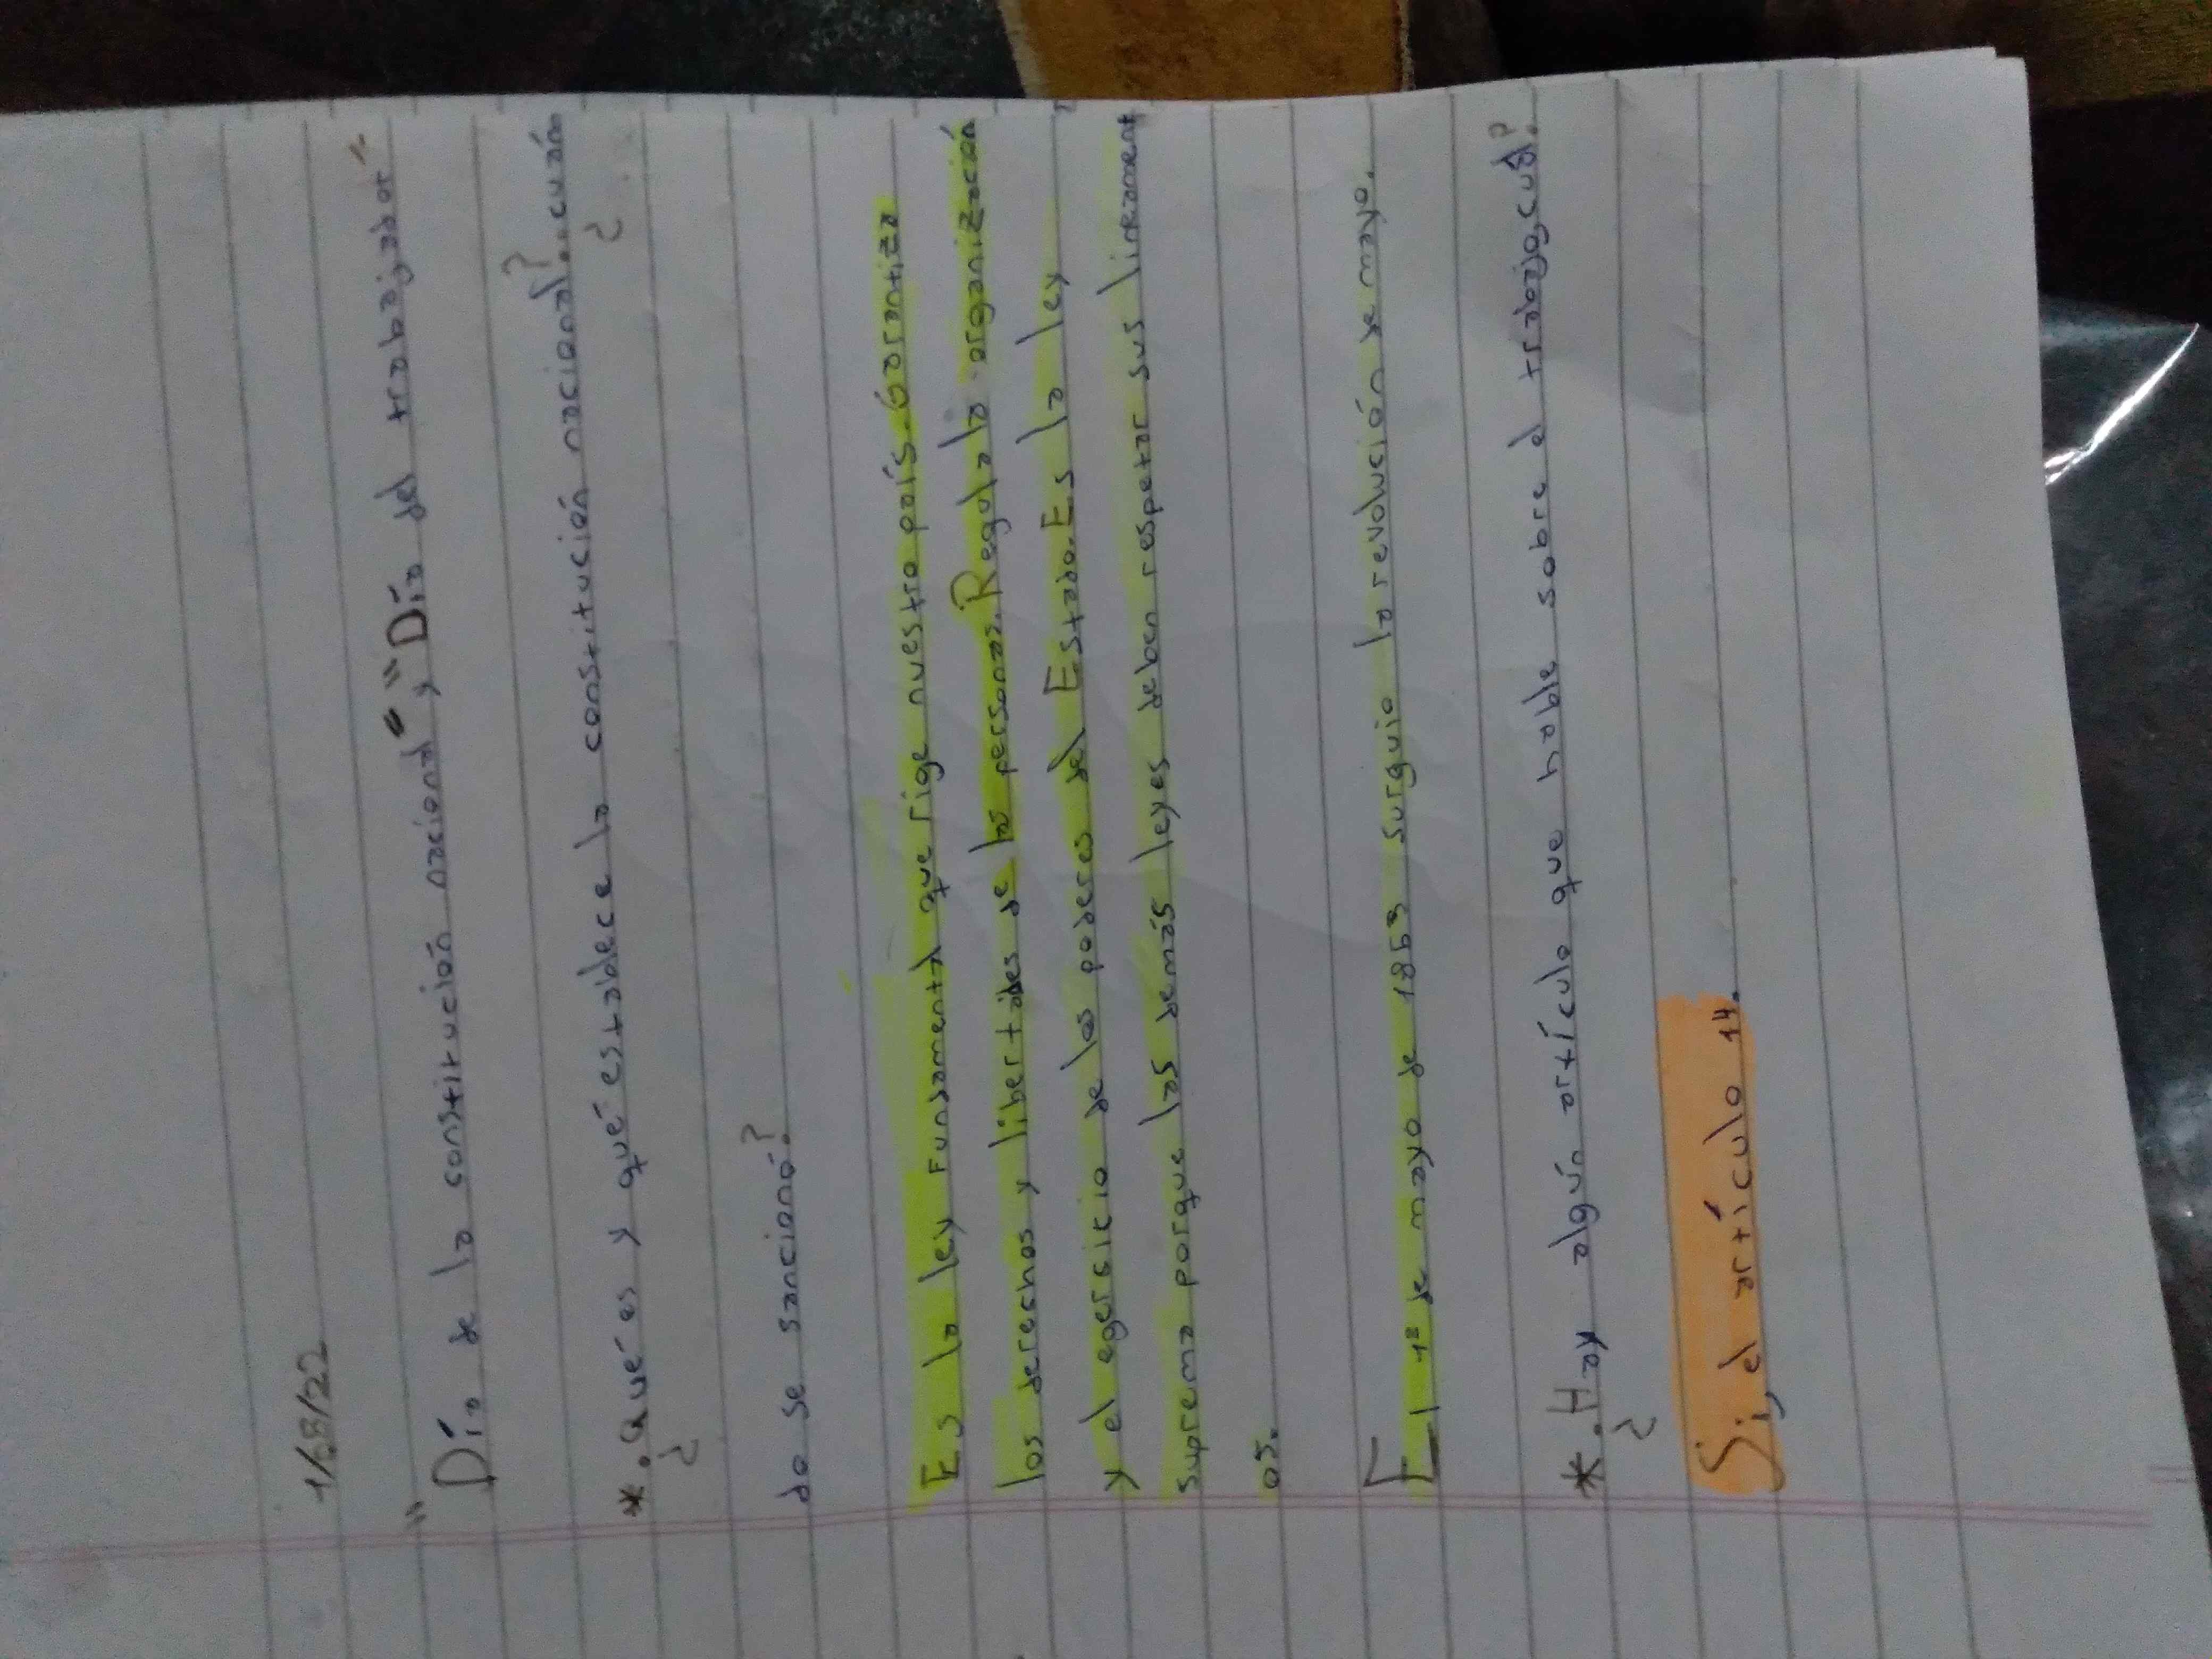 "Día de la constitución nacional" y "Día del trabajador"
*¿Qué es y qué establece la constitución nacional? ¿cuán
do se sancionó?
Es la ley fundamental que rige nuestro país. Garantiza
los derechos y libertades de las personas. Regula la organización
y el egersicio de los poderes del Estado. Es la ley
suprema porque las demás leyes deben respetar sus lineament
os.
El 1º de mayo de 1853 surguio la revolución de mayo.
*¿Hay algún artículo que hable sobre el trabajo, cuál?
Si, el artículo 14.